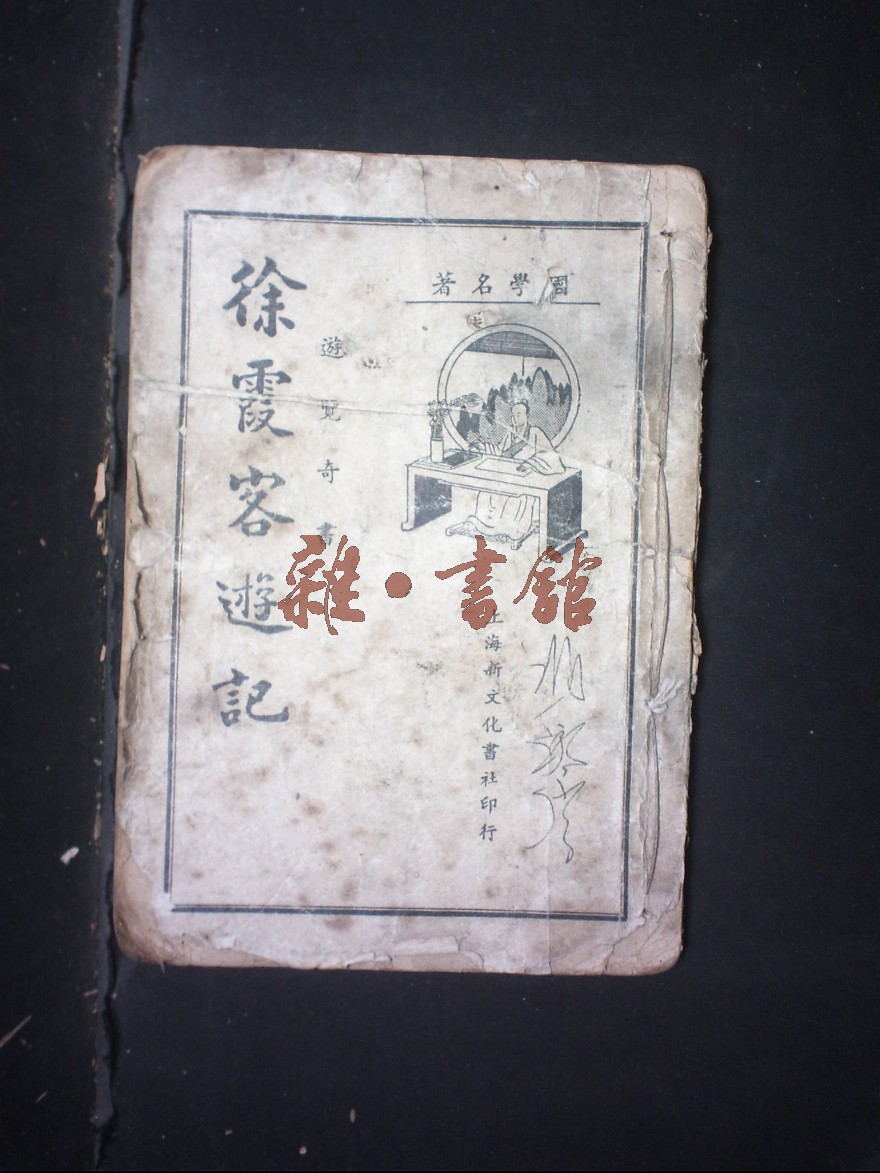 著名學國
徐霞客遊記
遊覽奇書
上海新文化書社印行
雜·書館